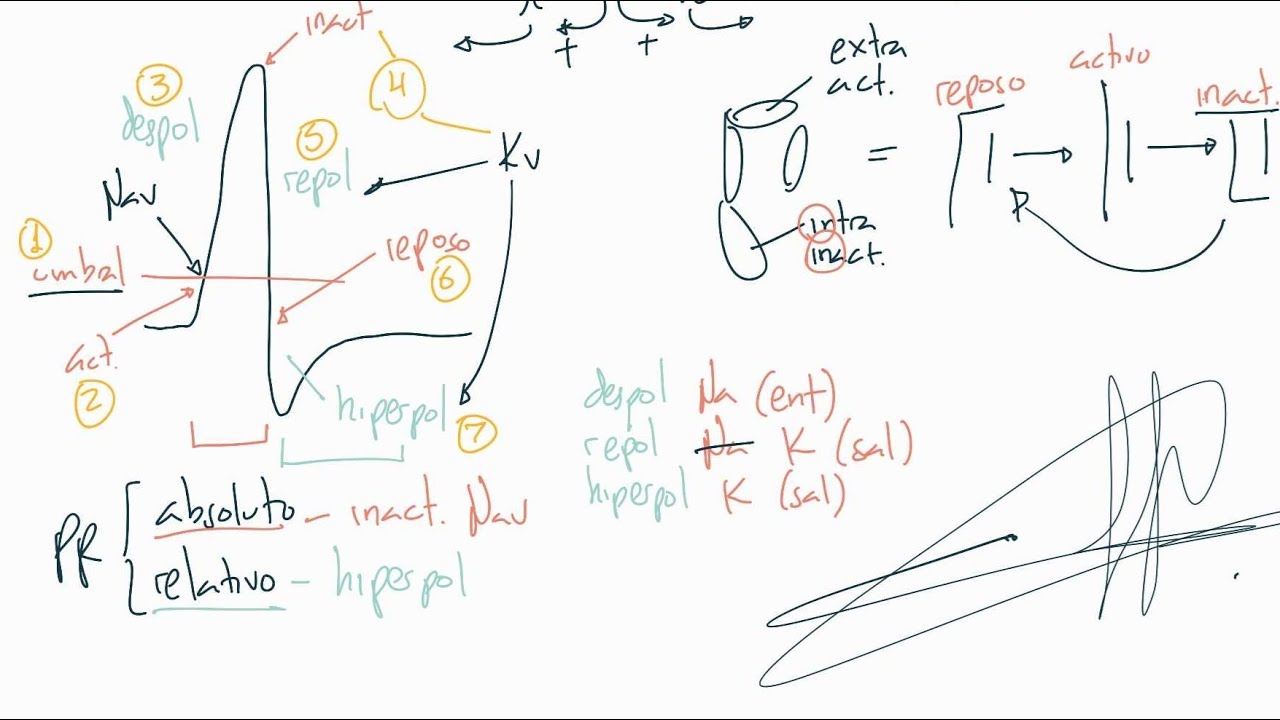 inact
+ +
3
despol
4
5
repol
Kv
Nav
1
umbral
reposo
6
act.
2
hiperpol
7
PR
absoluto - inact. Nav
relativo - hiperpol
extra
act.
intra
inact.
=
reposo
activo
inact.
P
despol Na (ent)
repol Na K (sal)
hiperpol K (sal)